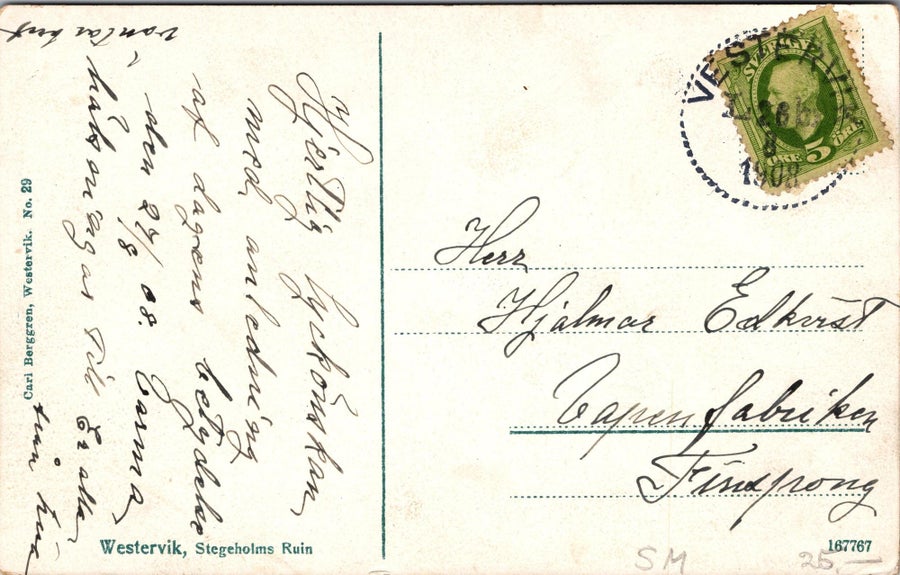 Hjertlig lyckönskan
med anledning
af dagens betydelse
den 27/8 08. Varma
hälsningar till Er alla
från
väntar
Carl Berggren, Westervik. No. 29
Westervik, Stegeholms Ruin
VESTERVIK
26
8
1908
SVERIGE
ÖRE 5 ÖRE
Herr
Hjalmar Edkvist
Vapenfabriken
Finspong
167767
SM
25—